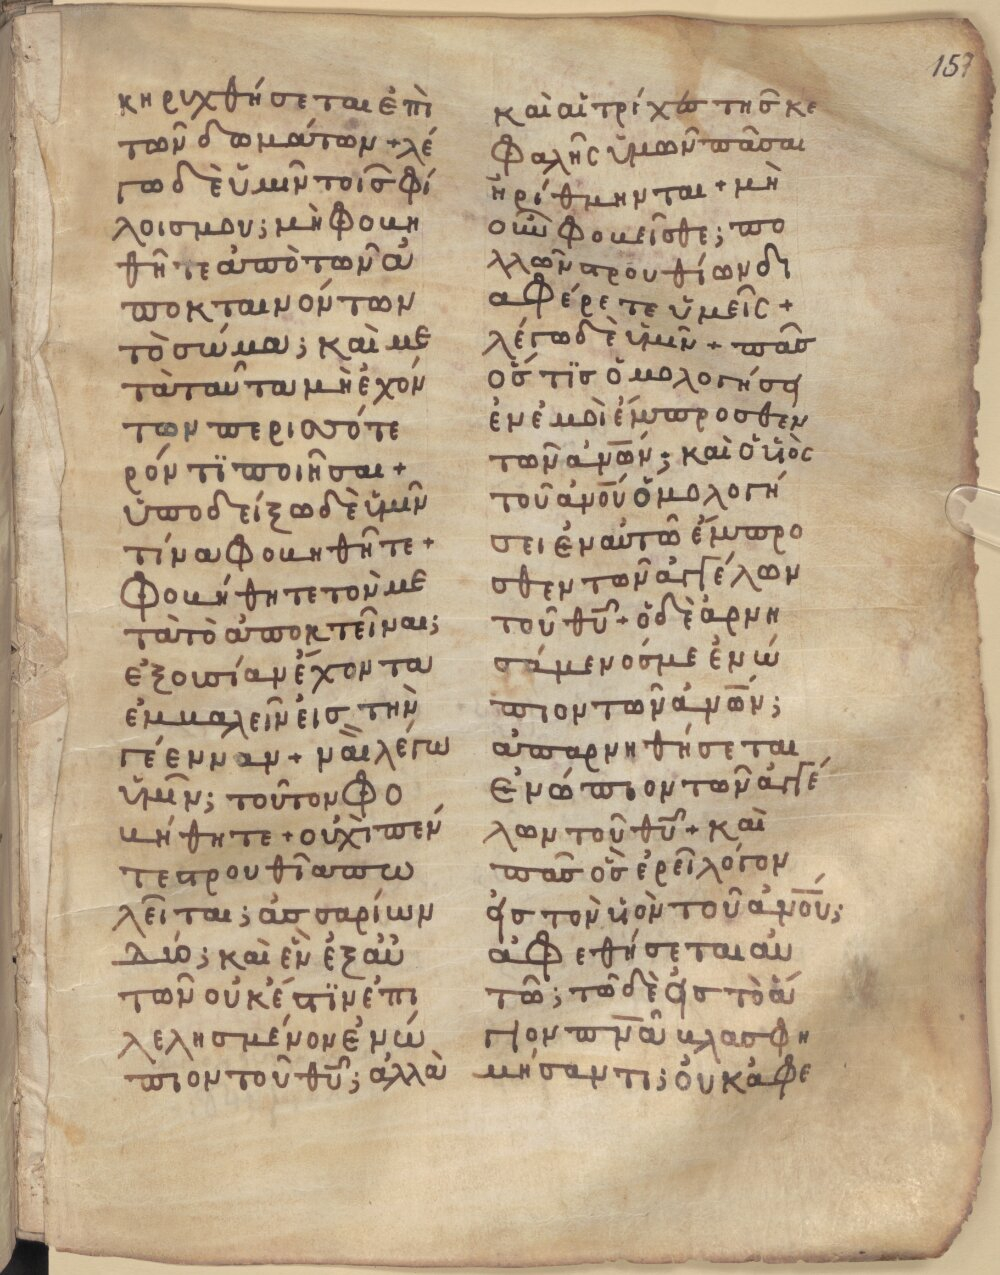 157
κηρυχθήσεται ἐπὶ
τῶν δωμάτων + λέ
γω δὲ ὑμῖν τοῖς φί
λοις μου; μὴ φοβη
θῆτε ἀπὸ τῶν ἀ
ποκταινόντων
τὸ σώμα; καὶ με
τὰ ταῦτα μὴ ἐχόν
των περισσότε
ρόν τϊ ποιῆσαι +
ὑποδείξω δὲ ὑμῖν
τίνα φοβηθῆτε +
φοβήθητε τὸν με
τὰ τὸ ἀποκτεῖναι;
ἐξουσίαν ἔχοντα
ἐμβαλεῖν εἰς τὴν
γέενναν + ναῒ λέγω
ὑμῖν; τοῦτον φο
βήθητε + οὐχὶ πέν
τε στρουθῖα πω
λεῖται; ἀσσαρίων
δύο; καὶ ἓν ἐξ αὐ
τῶν οὐκ έστϊν ἐπι
λελησμένον ἐνώ
πιον τοῦ θῦ; ἀλλὰ
καὶ αἱ τρίχες τῆς κε
φαλῆς ὑμῶν πᾶσαι
ἠρίθμηνται + μὴ
οῦν φοβεῖσθε; πο
λλῶν στρουθίων δι
αφέρετε ὑμεῖς +
λέγω δὲ ὑμῖν + πᾶς
ὅς τϊς ὁμολογήσει
ἐν ἐμοὶ ἔμπροσθεν
τῶν ἀνῶν; καὶ ὁ ϋἱὸς
τοῦ ἀνοῦ ὁμολογή
σει ἐν αὐτῶ ἔμπρο
σθεν τῶν ἀγγέλων
τοῦ θῦ + ὁ δὲ ἀρνη
σάμενός με ἐνώ
πιον τῶν ἀνῶν;
ἀπαρνηθήσεται
ἐνώπιον τῶν ἀγγέ
λων τοῦ θῦ + καὶ
πᾶς ὃς ἐρεῖ λόγον
εἰς τὸν ὑιὸν τοῦ ἀνοῦ;
ἀφεθήσεται αὐ
τῶ; τῶ δὲ εἰς τὸ ἅ
γιον πνᾶ βλασφη
μήσαντι; ὀυκ ἀφε